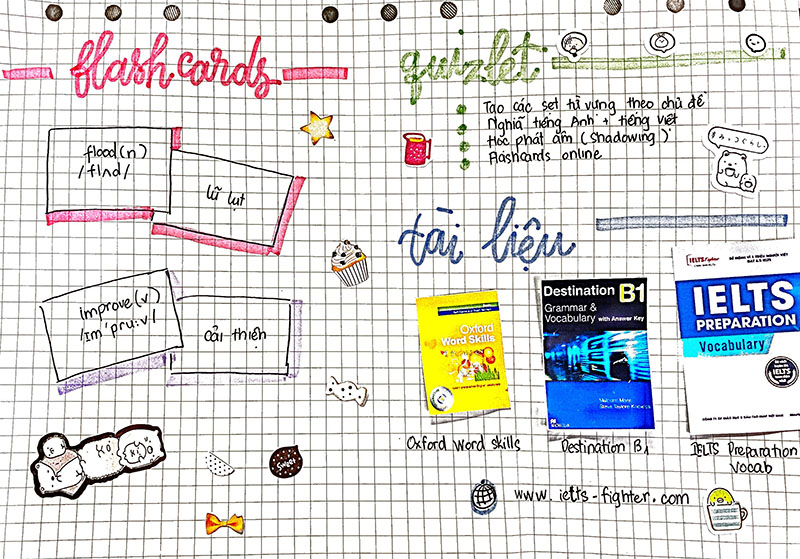 flash cards
flood(n)
/flʌd/
lũ lụt
improve(v)
/ɪm'pru:v/
cải thiện
quizlet
Tạo các set từ vựng theo chủ đề
Nghĩa tiếng Anh + tiếng Việt
Học phát âm (Shadowing)
Flashcards online
tài liệu
Oxford
Word Skills
Destination B1
Grammar &
Vocabulary with Answer Key
Malcolm Mann
Steve Taylore-Knowles
IELTS Fighter
IELTS
PREPARATION
Vocabulary
Oxford Word Skills
Destination B1
IELTS Preparation
Vocab
www.ielts-fighter.com